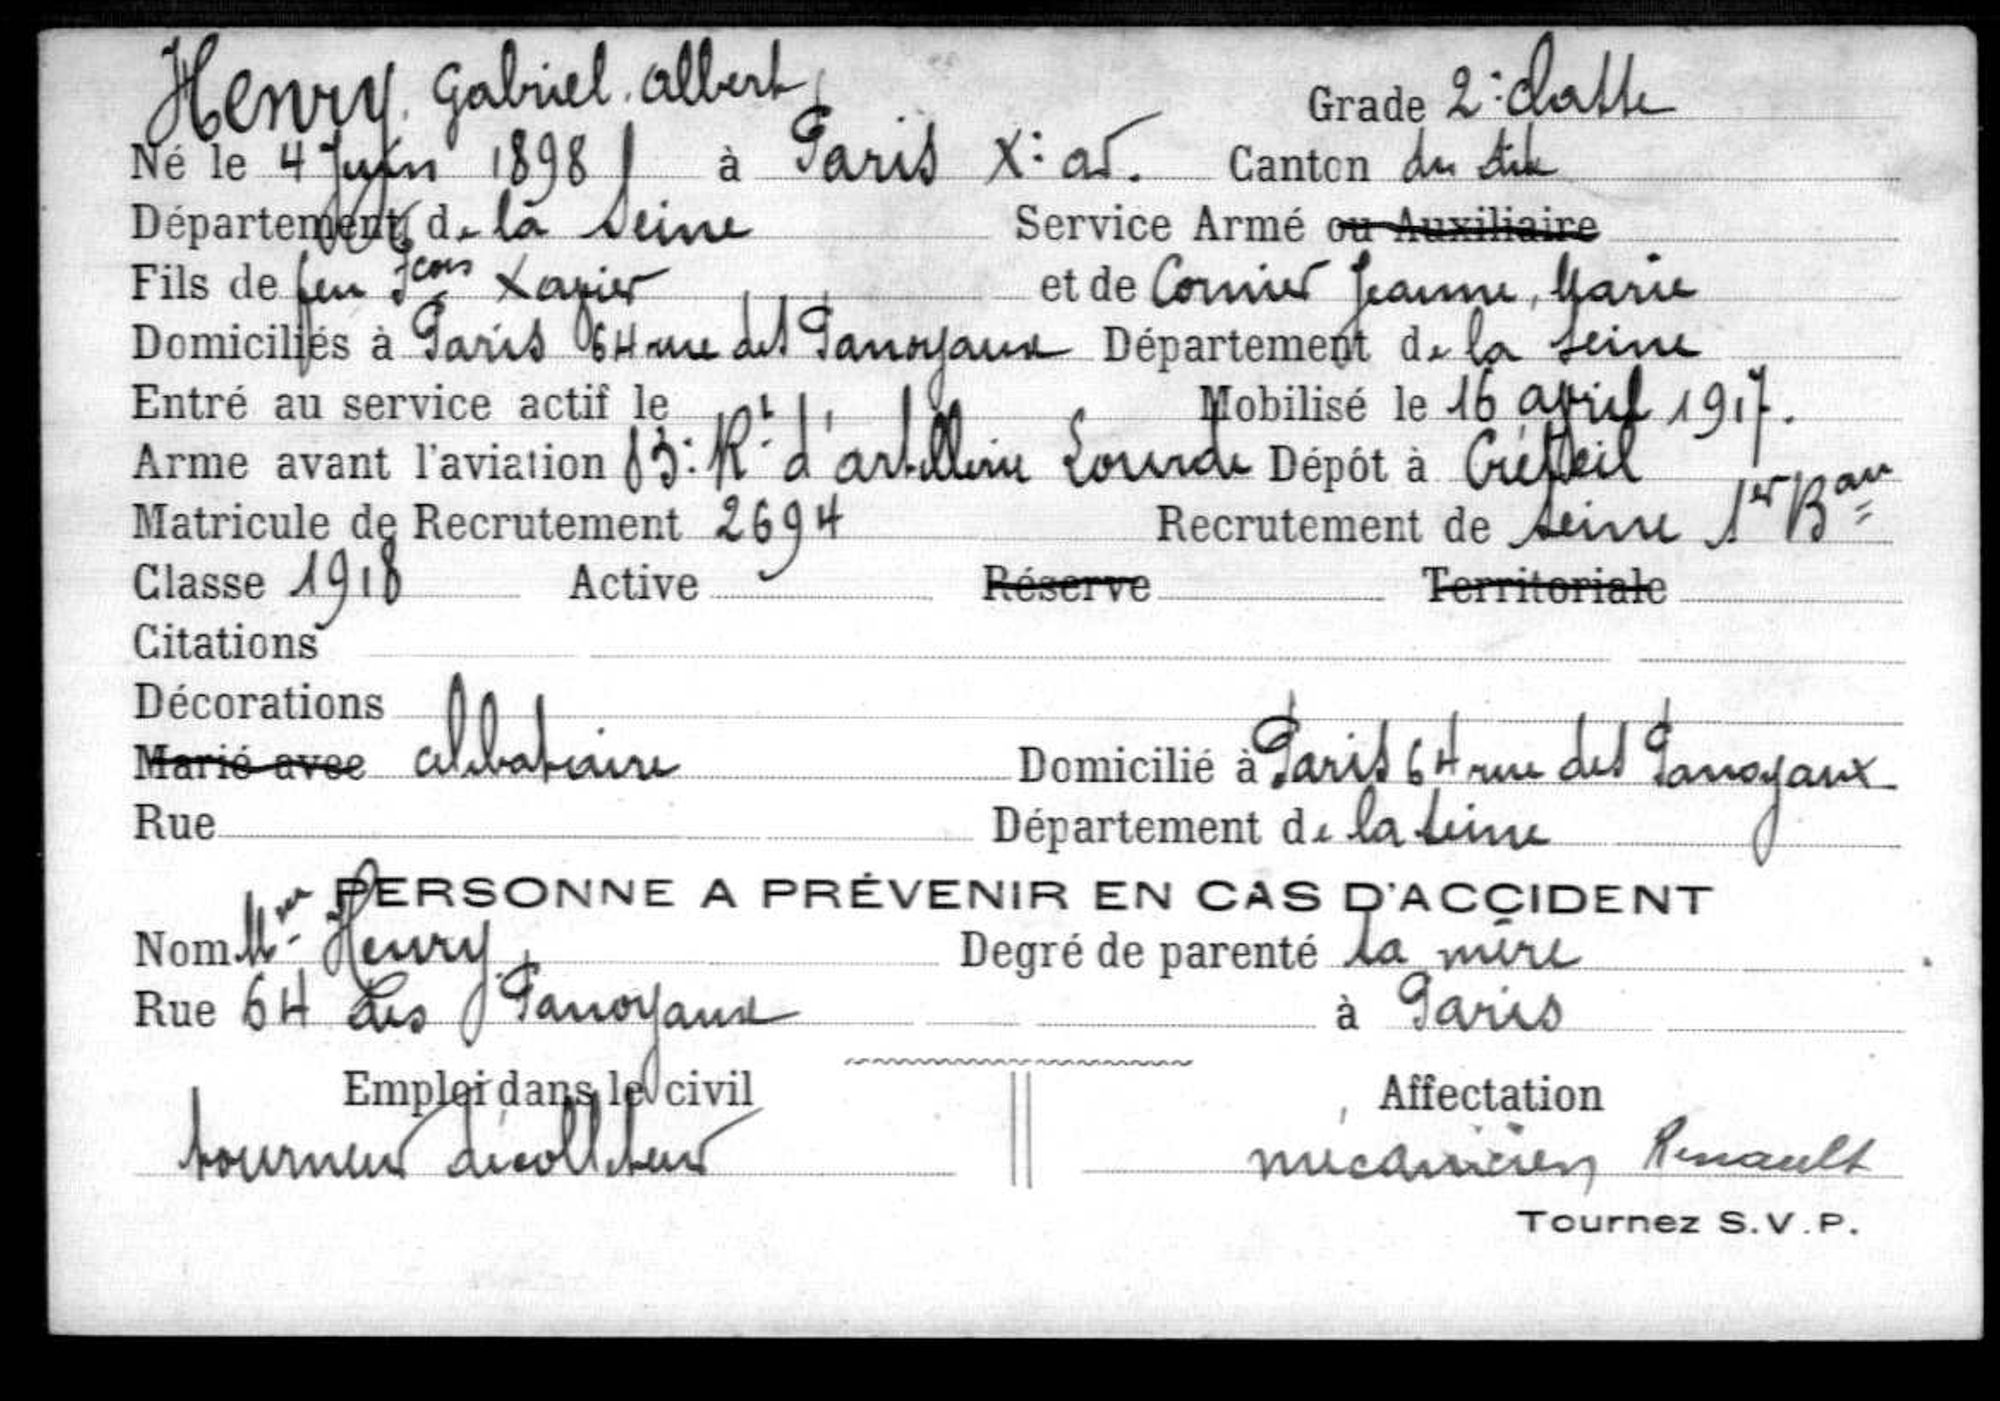 Henry. Gabriel. Albert Grade 2e classe
Né le 4 Juin 1898 à Paris Xe ar. Canton du dit
Département de la Seine Service Armé ou Auxiliaire
Fils de feu Fcois Xavier et de Cornier Jeanne, Marie
Domiciliés à Paris 64 rue des Panoyaux Département de la Seine
Entré au service actif le Mobilisé le 16 avril 1917.
Arme avant l'aviation 83e Rt d'artillerie Lourde Dépôt à Créteil
Matricule de Recrutement 2694 Recrutement de Seine 1er Bau
Classe 1918 Active Réserve Territoriale
Citations
Décorations
Marié avec célibataire Domicilié à Paris 64 rue des Panoyaux
Rue Département de la Seine
PERSONNE A PRÉVENIR EN CAS D'ACCIDENT
Nom Henry Degré de parenté la mère
Rue 64 des Panoyaux à Paris
Emploi dans le civil Affectation
tourneur décolleteur mécanicien Renault
Tournez S.V.P.